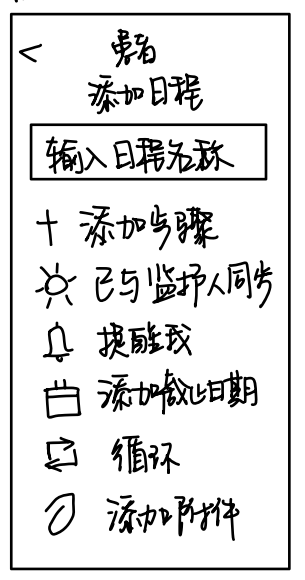 患者
添加日程
输入日程名称
添加步骤
已与监护人同步
提醒我
添加截止日期
循环
添加附件